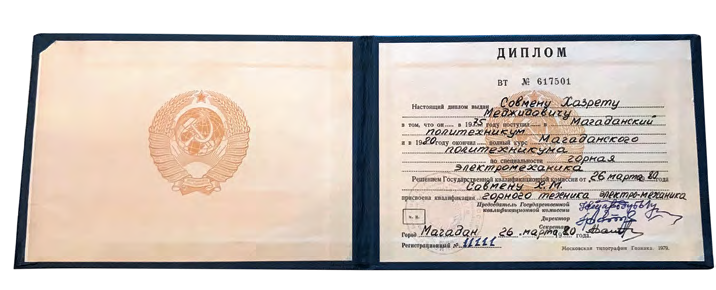 ДИПЛОМ
ВТ № 617501
Настоящий диплом выдан Совмену Хазрету
Меджидовичу
в том, что он в 1975 году поступил в Магаданский
политехникум
и в 1980 году окончил полный курс Магаданского
политехникума
по специальности горная
электромеханика
Решением Государственной квалификационной комиссии от 26 марта 80
Совмену Х.М.
присвоена квалификация горного техника электро-механика
Председатель Государственной
квалификационной комиссии
Директор
Секретарь
Город Магадан 26 марта 1980 года.
Регистрационный № 11111
Московская типография Гознака. 1970.